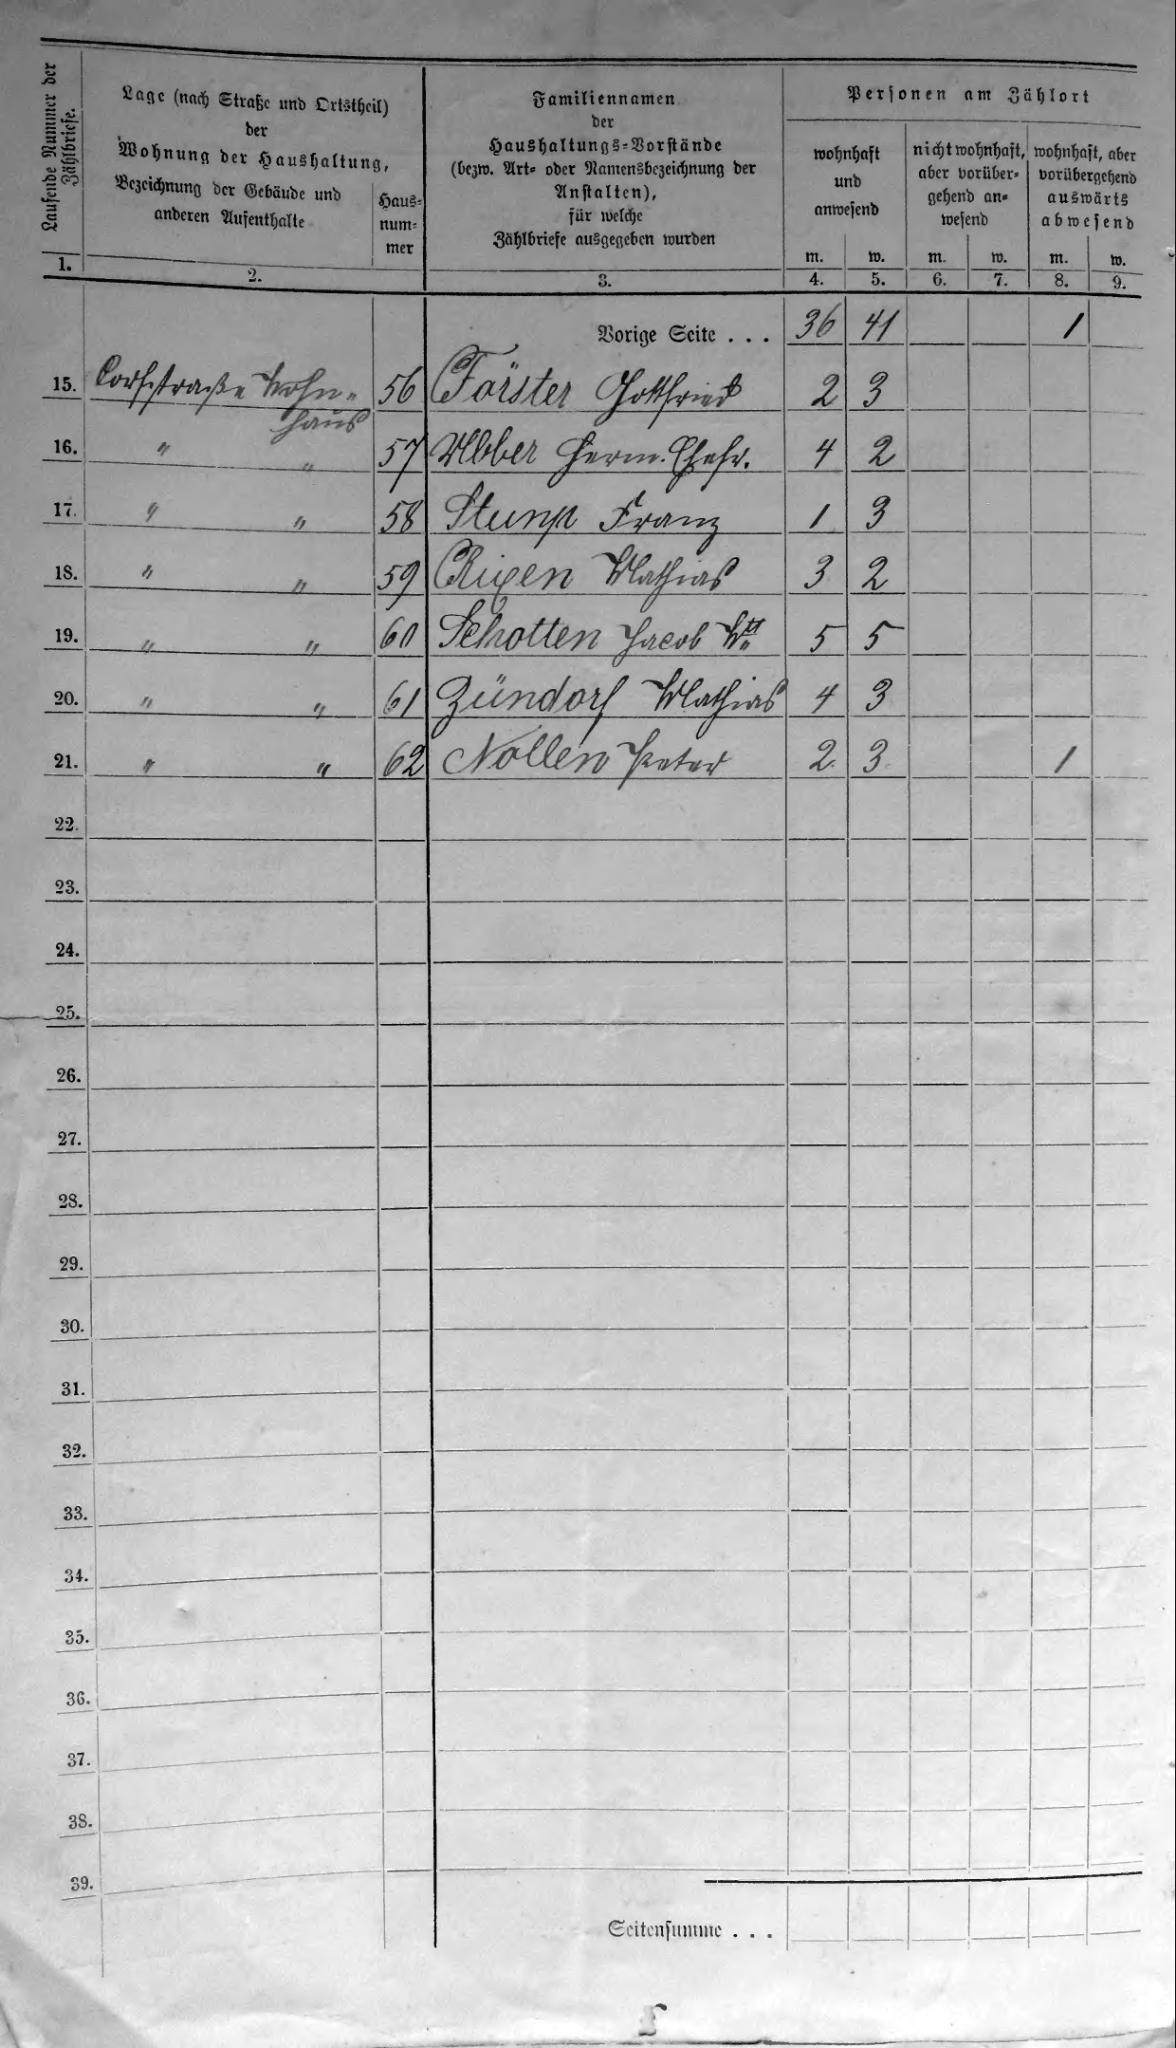 Laufende Nummer der Zählbriefe.
1.
Lage (nach Straße und Ortstheil)
der
Wohnung der Haushaltung,
Bezeichnung der Gebäude und
anderen Aufenthalte
Haus-
num-
mer
2.
Familiennamen
der
Haushaltungs-Vorstände
(bezw. Art- oder Namensbezeichnung der
Anstalten),
für welche
Zählbriefe ausgegeben wurden
3.
Personen am Zählort
wohnhaft
und
anwesend
nicht wohnhaft,
aber vorüber-
gehend an-
wesend
wohnhaft, aber
vorübergehend
auswärts
abwesend
m. w. m. w. m. w.
4. 5. 6. 7. 8. 9.
Vorige Seite . . . 36 41 1
15. Wohn- 56 Förster Gottfried 2 3
haus
16. " " 57 Ubber Herm. Ehefr. 4 2
17. " " 58 Stump Franz 1 3
18. " " 59 Rixen Mathias 3 2
19. " " 60 Schotten Jacob Wtt 5 5
20. " " 61 Zündorf Mathias 4 3
21. " " 62 Nollen Peter 2 3 1
22.
23.
24.
25.
26.
27.
28.
29.
30.
31.
32.
33.
34.
35.
36.
37.
38.
39.
Seitensumme . . .